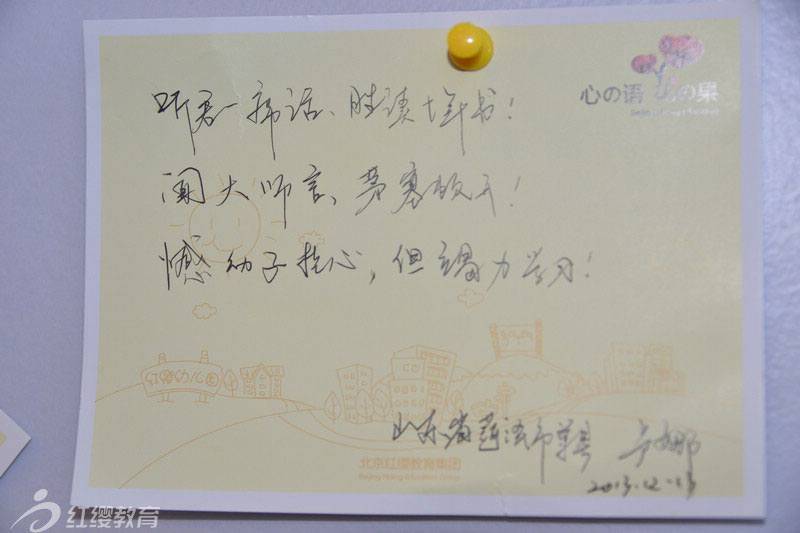 心の语 の果
听君一席话、胜读十年书!
闻大师言、茅塞顿开!
憾幼子扰心,但竭力学习!
红缨幼儿园
山东省菏泽市单县 卢娜
北京红缨教育集团
Beijing Education Group
2013.12.13
红缨教育